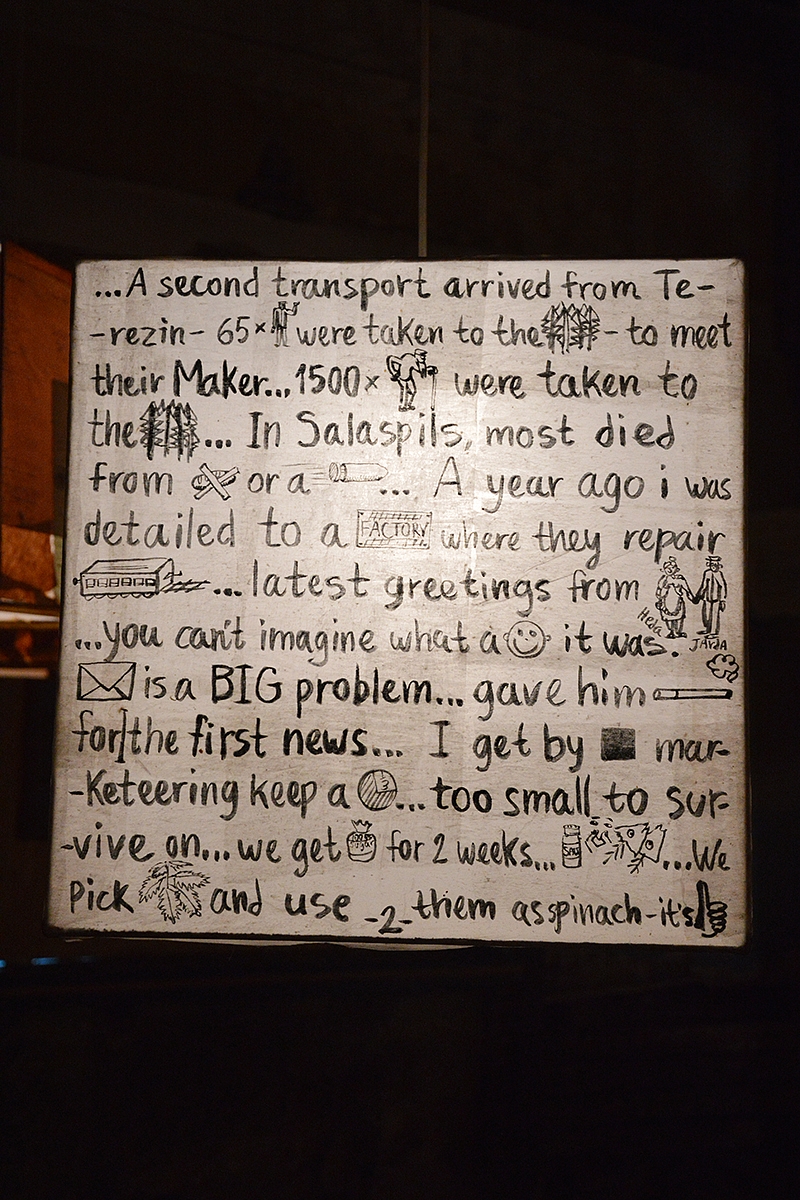 ...A second transport arrived from Te-
-rezin- 65× were taken to the - to meet
their Maker... 1500× were taken to
the ... In Salaspils, most died
from or a ... A year ago i was
detailed to a FACTORY where they repair
... latest greetings from
Hela
...you can't imagine what a it was. JARDA
is a BIG problem... gave him
for the first news... I get by mar-
-keteering keep a ... too small to sur-
-vive on... we get for 2 weeks... ...We
Pick and use -2- them as spinach - it's